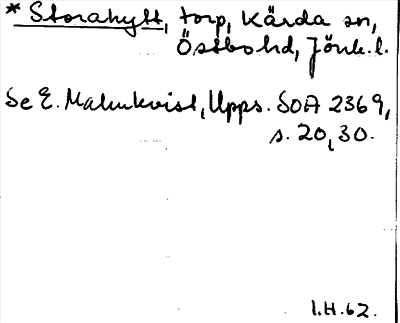 * Storahytt, torp, Kärda sn,
Östbo hd, Jönk. l.
Se E. Malmkvist, Upps. SOA 2369,
s. 20, 30.
I.H. 62.